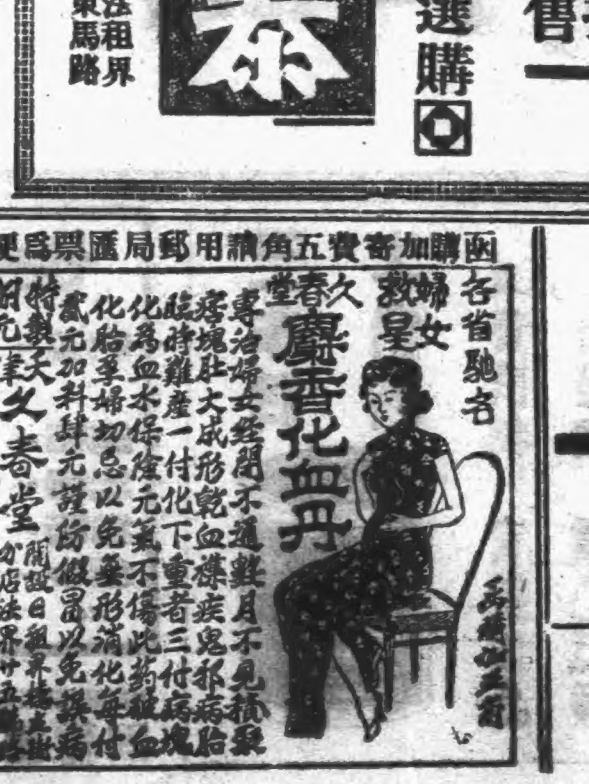 售
選購
泰
法租界
東馬路
函購加寄費五角請用郵局匯票為便
各省馳名
婦女
救星
久春堂
麝香化血丹
專治婦女經閉不通數月不見積聚
痞塊肚大成形乾血癆疾鬼邪病胎
臨時難產一付化下重者三付病塊
化為血水保險元氣不傷此药雖血
化胎孕婦切忌以免無形消化每付
貳元加料肆元謹防假冒以免誤病
特製
天津久春堂
開設日租界
分店法界廿五號